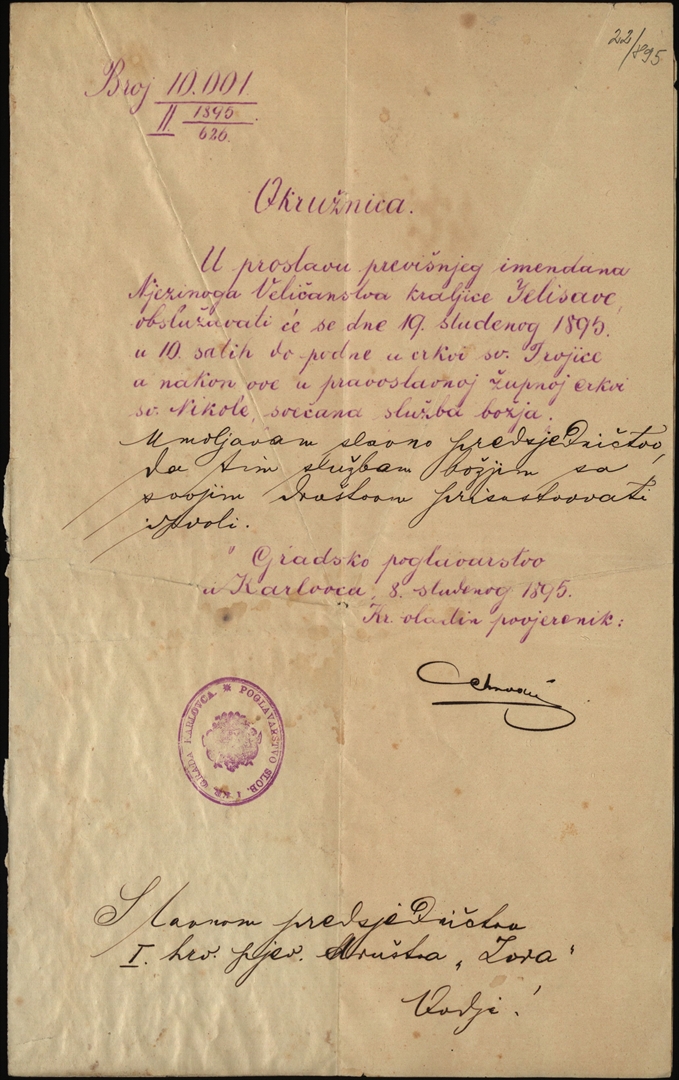 22/895
Broj 10.001
II. 1895
626.
Okružnica.
U proslavu previšnjeg imendana
Njezinoga Veličanstva kraljice Jelisave,
obslužavati će se dne 19. studenog 1895.
u 10. satih do podne u crkvi sv. Trojice
u nakon ove u pravoslavnoj župnoj crkvi
sv. Nikole, svečana služba božja.
Umoljavam slavno predsjedničtvo,
da tim službam božjim sa
svojim družtvom prisustvovati
izvoli.
Gradsko poglavarstvo
u Karlovcu, 8. studenog 1895.
Kr. vladin povjerenik:
POGLAVARSTVO SLOB. I KR. GRADA KARLOVCA.
Slavnom predsjedničtvu
I. hrv. pjev. družtva „Zora"
Ovdje!